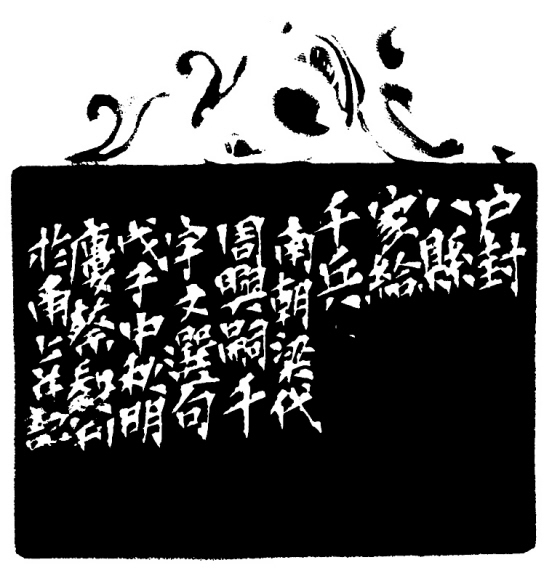 户封
八縣
家給
千兵
南朝梁代
周興嗣千
字文選句
戊子中秋明
慶蔡
於甬上并記